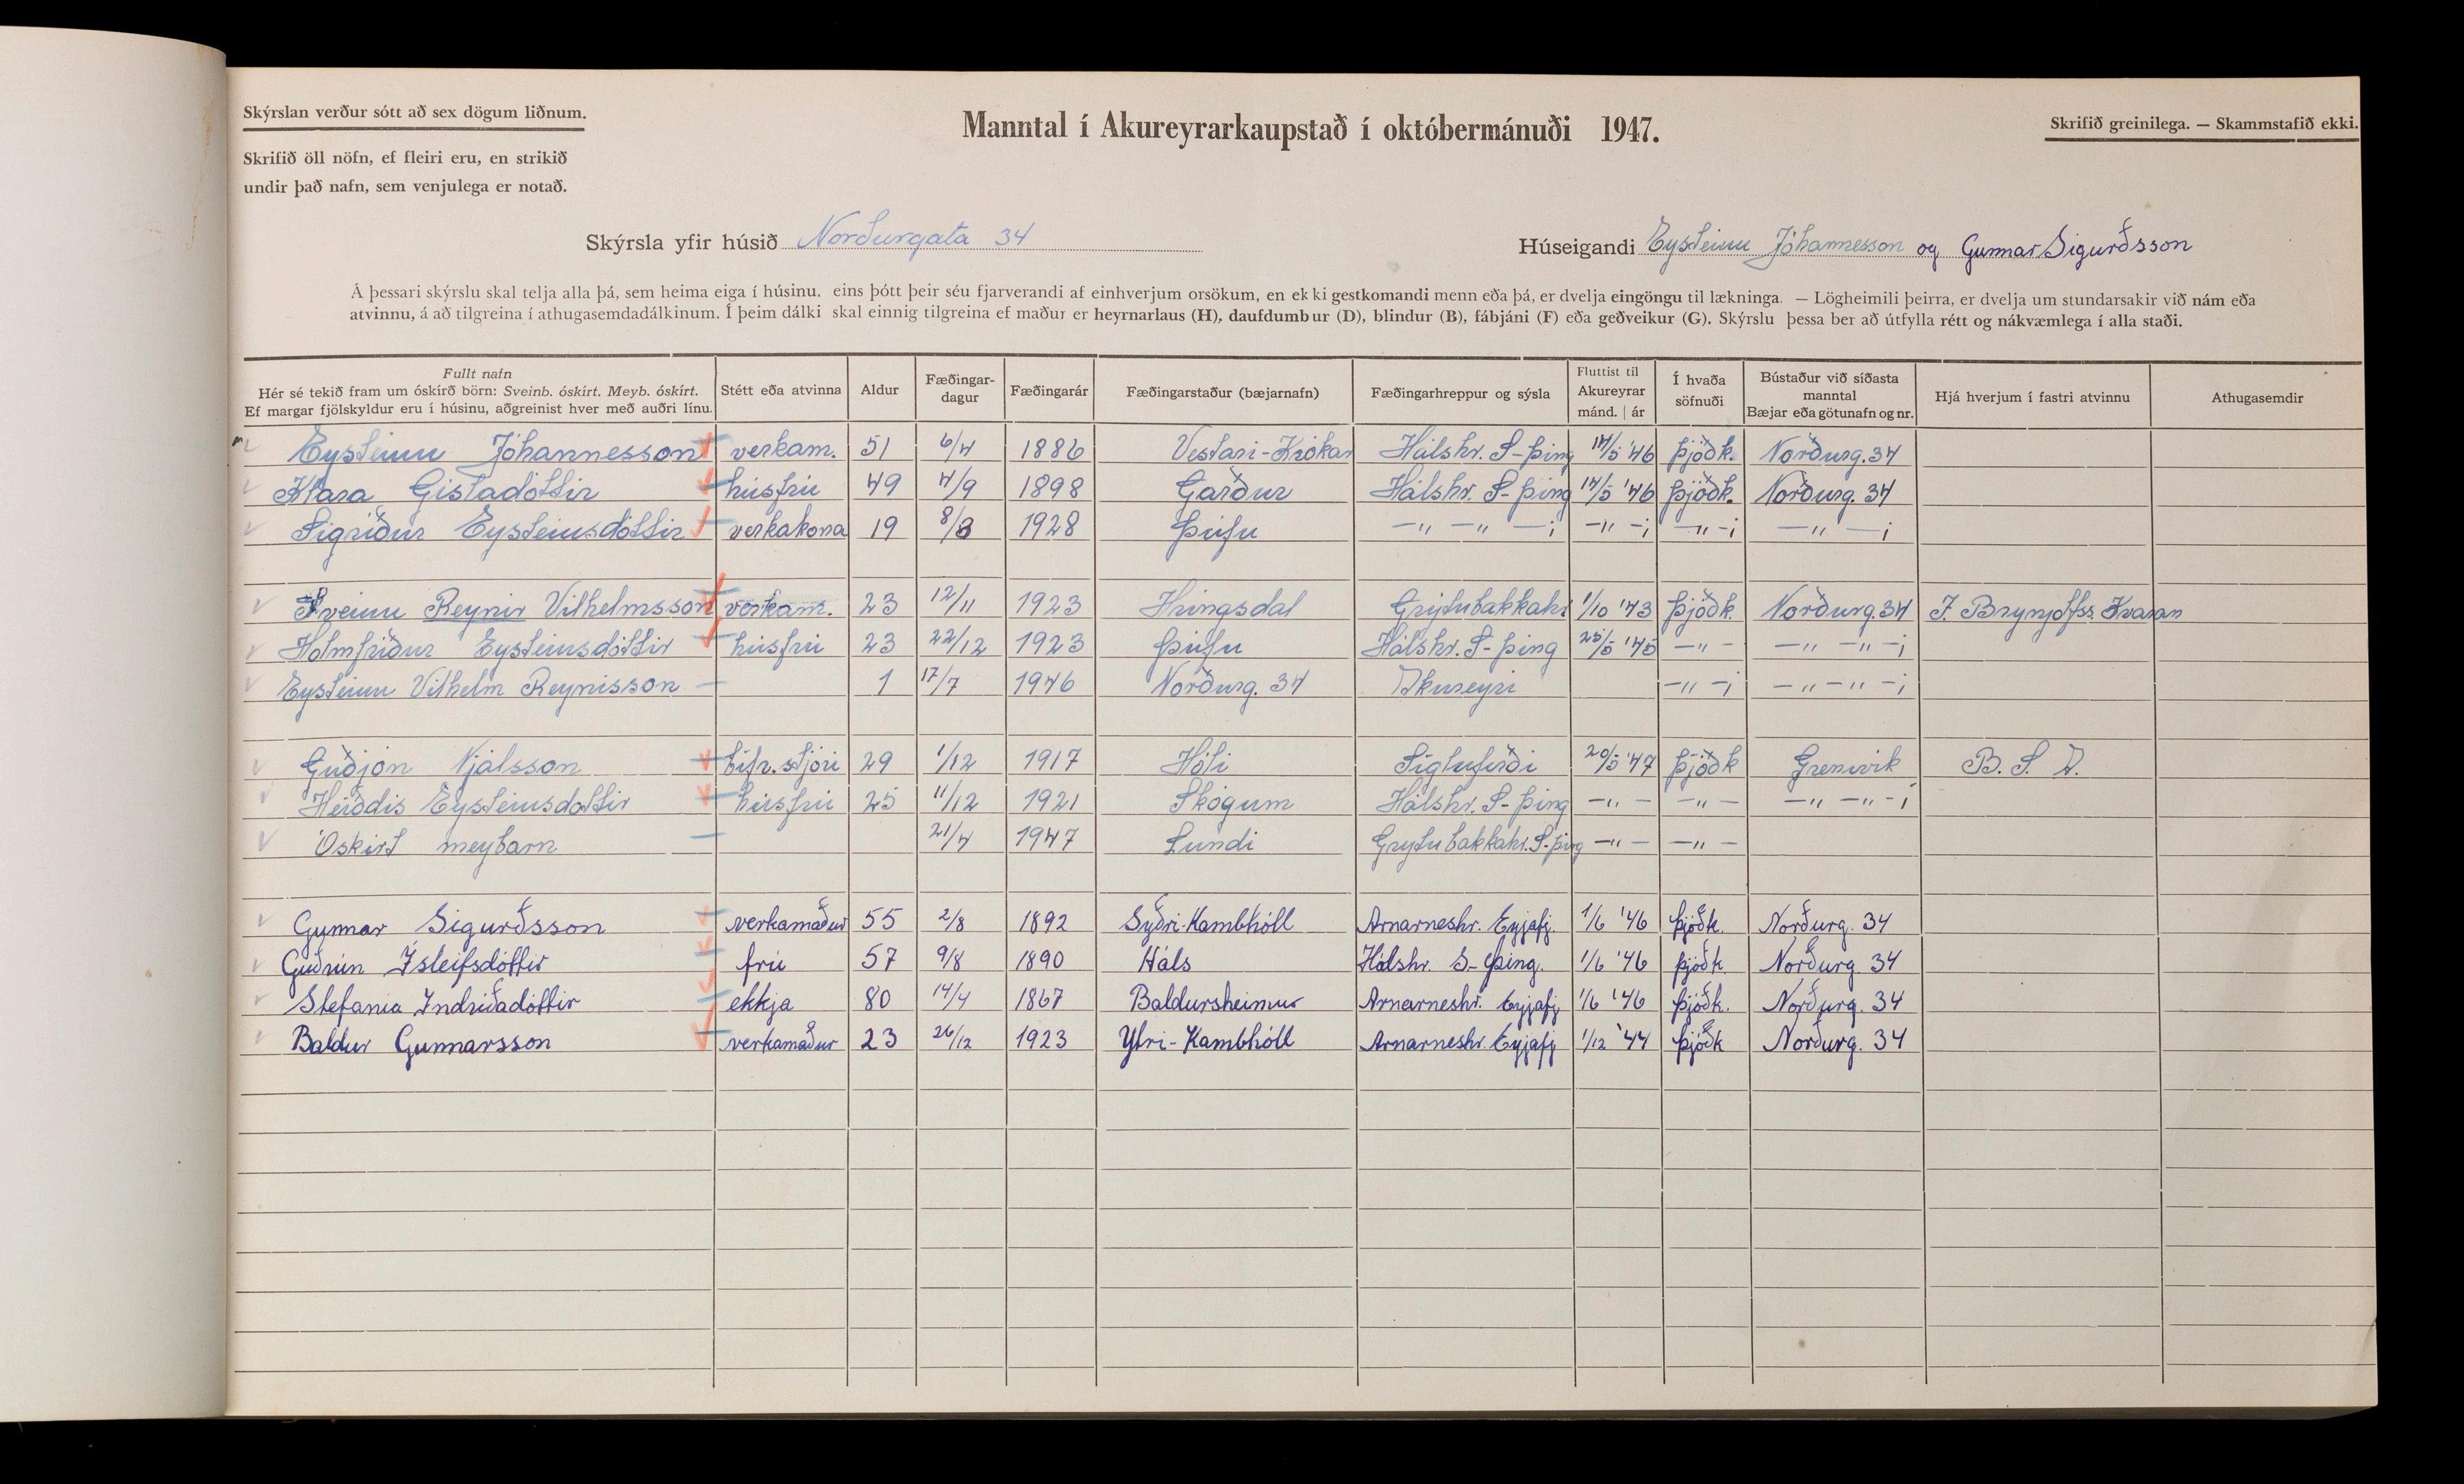 Skýrslan verður sótt að sex dögum liðnum.
Manntal í Akureyrarkaupstað í októbermánuði 1947.
Skrifið greinilega. — Skammstafið ekki.
Skrifið öll nöfn, ef fleiri eru, en strikið
undir það nafn, sem venjulega er notað.
Skýrsla yfir húsið Norðurgata 34
Húseigandi Eysteinn Jóhannesson og Gunnar Sigurðsson
Á þessari skýrslu skal telja alla þá, sem heima eiga í húsinu, eins þótt þeir séu fjarverandi af einhverjum orsökum, en ekki gestkomandi menn eða þá, er dvelja eingöngu til lækninga. — Lögheimili þeirra, er dvelja um stundarsakir við nám eða
atvinnu, á að tilgreina í athugasemdadálkinum. Í þeim dálki skal einnig tilgreina ef maður er heyrnarlaus (H), daufdumbur (D), blindur (B), fábjáni (F) eða geðveikur (G). Skýrslu þessa ber að útfylla rétt og nákvæmlega í alla staði.
Fullt nafn
Hér sé tekið fram um óskírð börn: Sveinb. óskírt. Meyb. óskírt.
Ef margar fjölskyldur eru í húsinu, aðgreinist hver með auðri línu.
Stétt eða atvinna
Aldur
Fæðingar-
dagur
Fæðingarár
Fæðingarstaður (bæjarnafn)
Fæðingarhreppur og sýsla
Fluttist til
Akureyrar
mánd. | ár
Í hvaða
söfnuði
Bústaður við síðasta
manntal
Bæjar eða götunafn og nr.
Hjá hverjum í fastri atvinnu
Athugasemdir
Eysteinn Jóhannesson verkam. 51 6/4 1886 Vestari-Krókar Hálshr. S-þing 14/5 '46 þjóðk. Norðurg. 34
Klara Gísladóttir húsfrú 49 4/9 1898 Garður Hálshr. S-þing 14/5 '46 þjóðk. Norðurg. 34
Sigríður Eysteinsdóttir verkakona 19 8/3 1928 Þúfu —"— —"— —; —"—; —"—; —"— —;
Sveinn Reynir Vilhelmsson verkam. 23 12/11 1923 Hringsdal Grýtubakkahr 1/10 '43 þjóðk. Norðurg. 34 J. Brynjolfss. Kvaran
Hólmfríður Eysteinsdóttir húsfrú 23 22/12 1923 Þúfu Hálshr. S-þing 25/5 '45 —"— —"— —"—;
Eysteinn Vilhelm Reynisson — 1 17/7 1946 Norðurg. 34 Akureyri —"—; —"—"—;
Guðjón Njálsson bifr.stjóri 29 1/12 1917 Hóli Siglufirði 20/5 '47 þjóðk Grenivík B. S. A.
Heiðdís Eysteinsdóttir húsfrú 25 11/12 1921 Skógum Hálshr. S-þing —"— —"— —"— —"—;
Óskírt meybarn — 21/4 1947 Lundi Grýtubakkahr. S-þing —"— —"—
Gunnar Sigurðsson verkamaður 55 2/8 1892 Syðri-Kambhóll Arnarneshr. Eyjafj. 1/6 '46 þjóðk. Norðurg. 34
Guðrún Ísleifsdóttir frú 57 9/8 1890 Háls Hálshr. S-þing. 1/6 '46 þjóðk. Norðurg 34
Stefanía Indriðadóttir ekkja 80 14/4 1867 Baldursheimur Arnarneshr. Eyjafj 1/6 '46 þjóðk. Norðurg. 34
Baldur Gunnarsson verkamaður 23 26/12 1923 Ytri-Kambhóll Arnarneshr. Eyjafj 1/12 '44 þjóðk Norðurg. 34